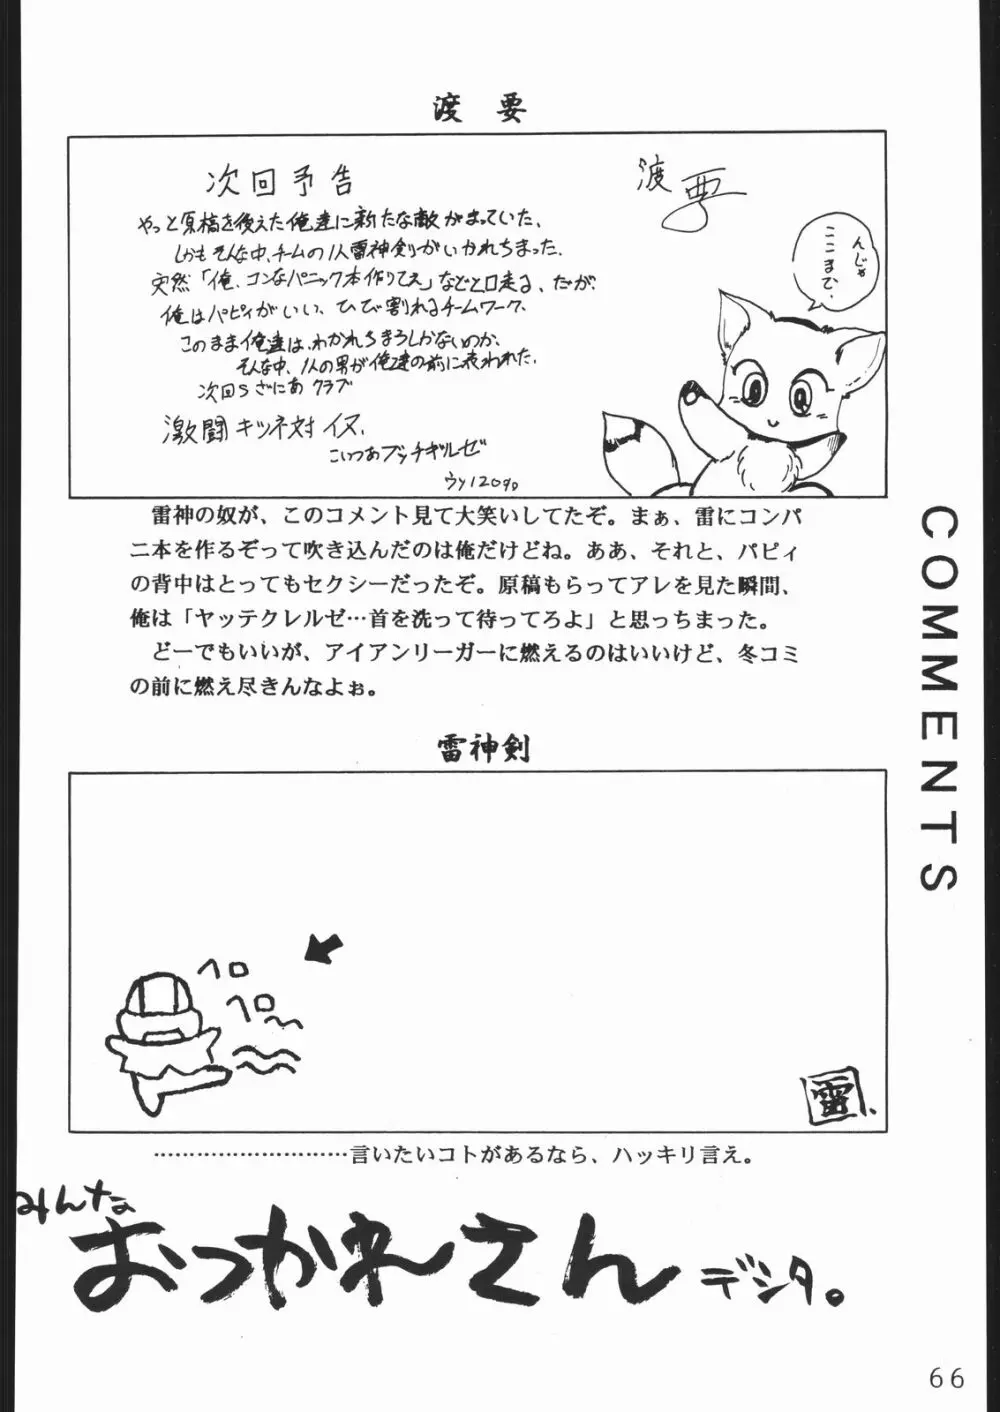 渡 要
次回予告
渡 要
やっと原稿を終えた俺達に新たな敵がまっていた、
しかもそんな中、チームの1人雷神剣がいかれちまった。
突然「俺、コンなパニック本作りてえ」などと口走る、だが、
俺はパピィがいい、ひび割れるチームワーク、
このまま俺達は、わかれちまうしかないのか、
そんな中、1人の男が俺達の前に表われた。
次回Sざにあクラブ
激闘キツネ対イヌ、
こいつあブッチギルゼ
んじゃ
ここまで、
雷神の奴が、このコメント見て大笑いしてたぞ。まぁ、雷にコンパ
ニ本を作るぞって吹き込んだのは俺だけどね。ああ、それと、パピィ
の背中はとってもセクシーだったぞ。原稿もらってアレを見た瞬間、
俺は「ヤッテクレルゼ…首を洗って待ってろよ」と思っちまった。
どーでもいいが、アイアンリーガーに燃えるのはいいけど、冬コミ
の前に燃え尽きんなよぉ。
COMMENTS
雷神剣
ヘロ
ヘロ
雷
………………………言いたいコトがあるなら、ハッキリ言え。
みんな
おつかれーさん
デシタ。
66